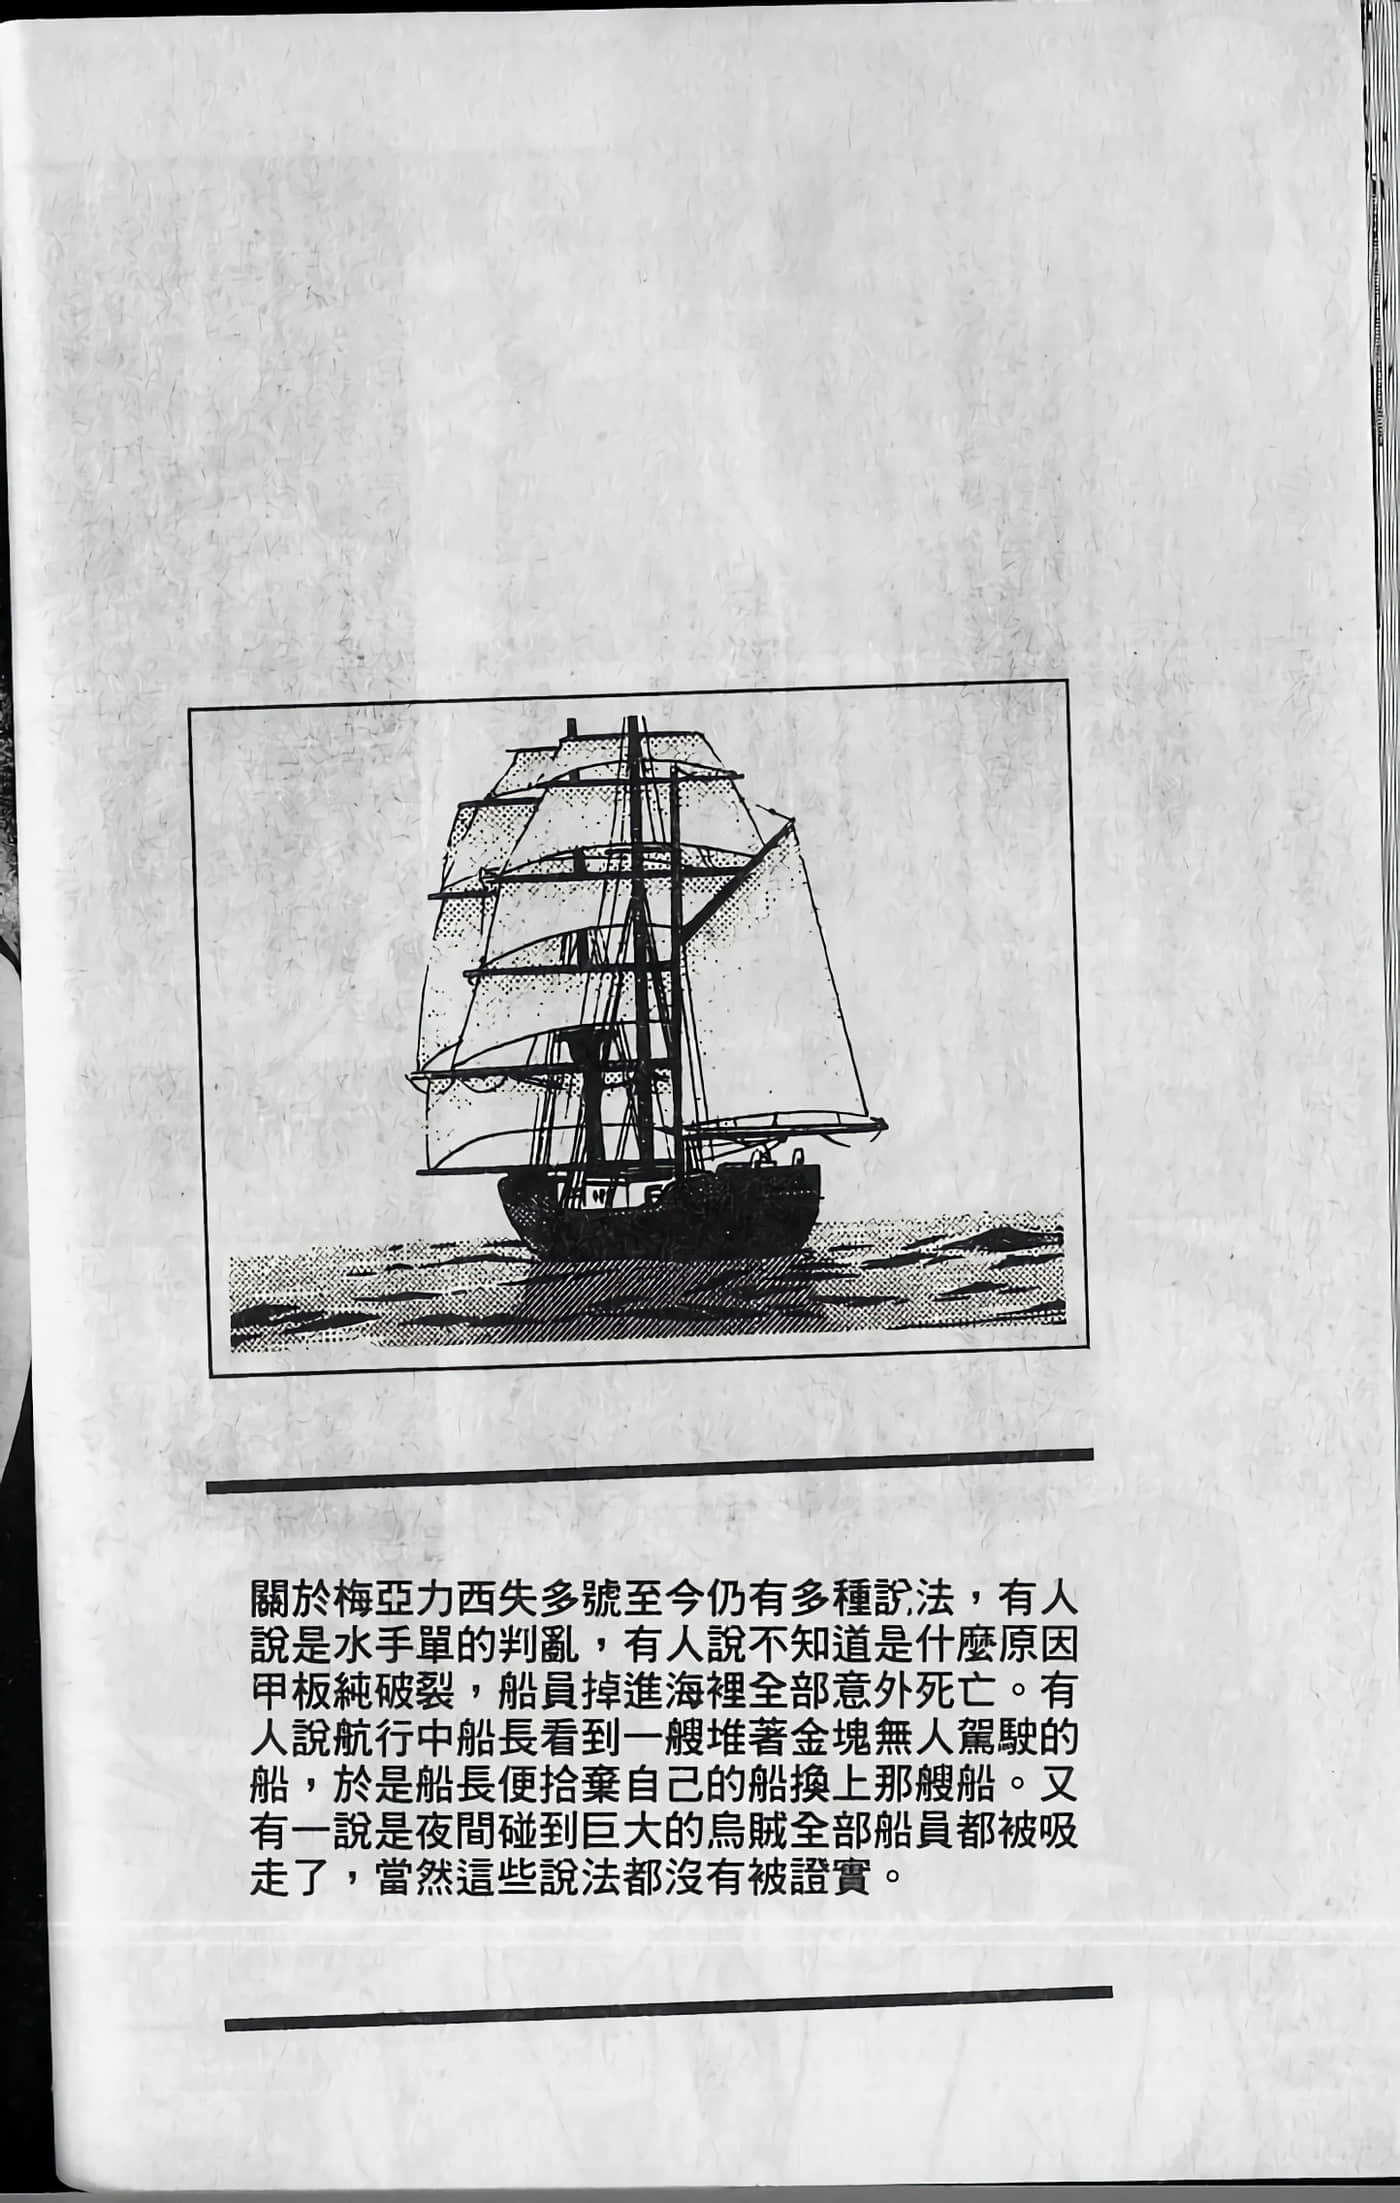 關於梅亞力西失多號至今仍有多種說法，有人
說是水手單的判亂，有人說不知道是什麼原因
甲板純破裂，船員掉進海裡全部意外死亡。有
人說航行中船長看到一艘堆著金塊無人駕駛的
船，於是船長便拾棄自己的船換上那艘船。又
有一說是夜間碰到巨大的烏賊全部船員都被吸
走了，當然這些說法都沒有被證實。